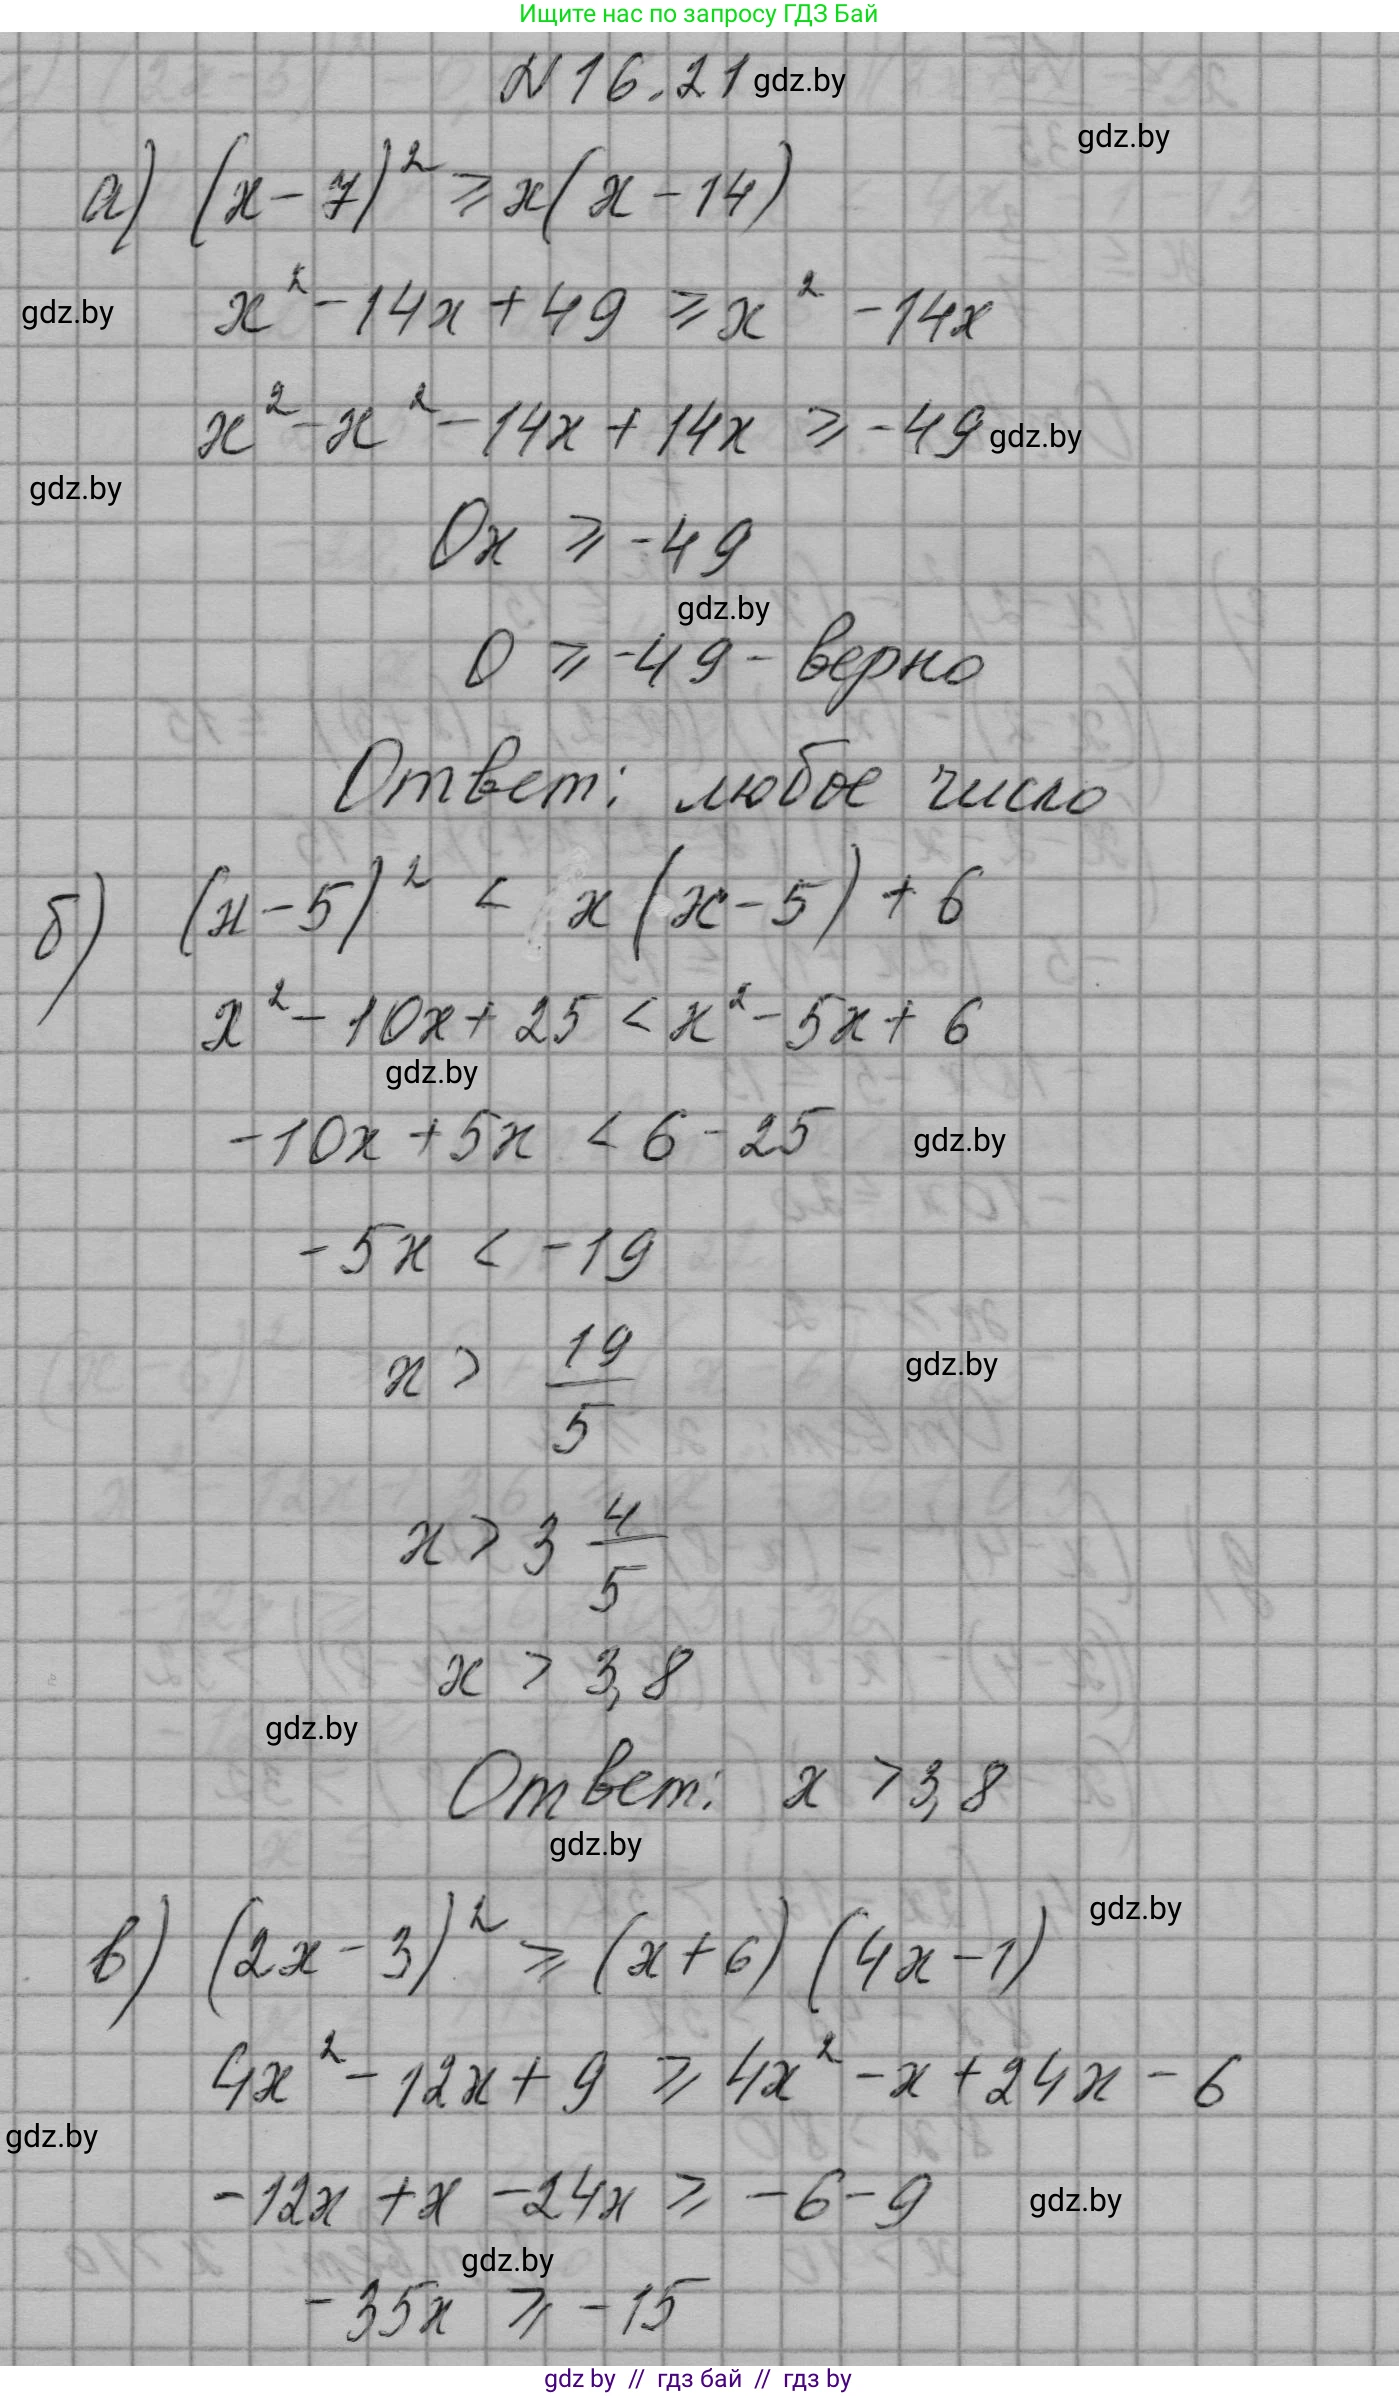 Ищите нас по запросу ГДЗ Бай
N 16.21 gdz.by
gdz.by
а) (x - 7)² ≥ x(x - 14)
gdz.by x² - 14x + 49 ≥ x² - 14x
x² - x² - 14x + 14x ≥ -49 gdz.by
gdz.by
0x ≥ -49
gdz.by
0 ≥ -49 - верно
Ответ: любое число
б) (x - 5)² < x(x - 5) + 6
x² - 10x + 25 < x² - 5x + 6
gdz.by
-10x + 5x < 6 - 25 gdz.by
-5x < -19
x > 19/5 gdz.by
x > 3 4/5
x > 3,8
gdz.by
Ответ: x > 3,8
gdz.by
gdz.by
в) (2x - 3)² ≥ (x + 6)(4x - 1)
4x² - 12x + 9 ≥ 4x² - x + 24x - 6
gdz.by
-12x + x - 24x ≥ -6 - 9 gdz.by
gdz.by
-35x ≥ -15
gdz by // гдз бай // гдз by